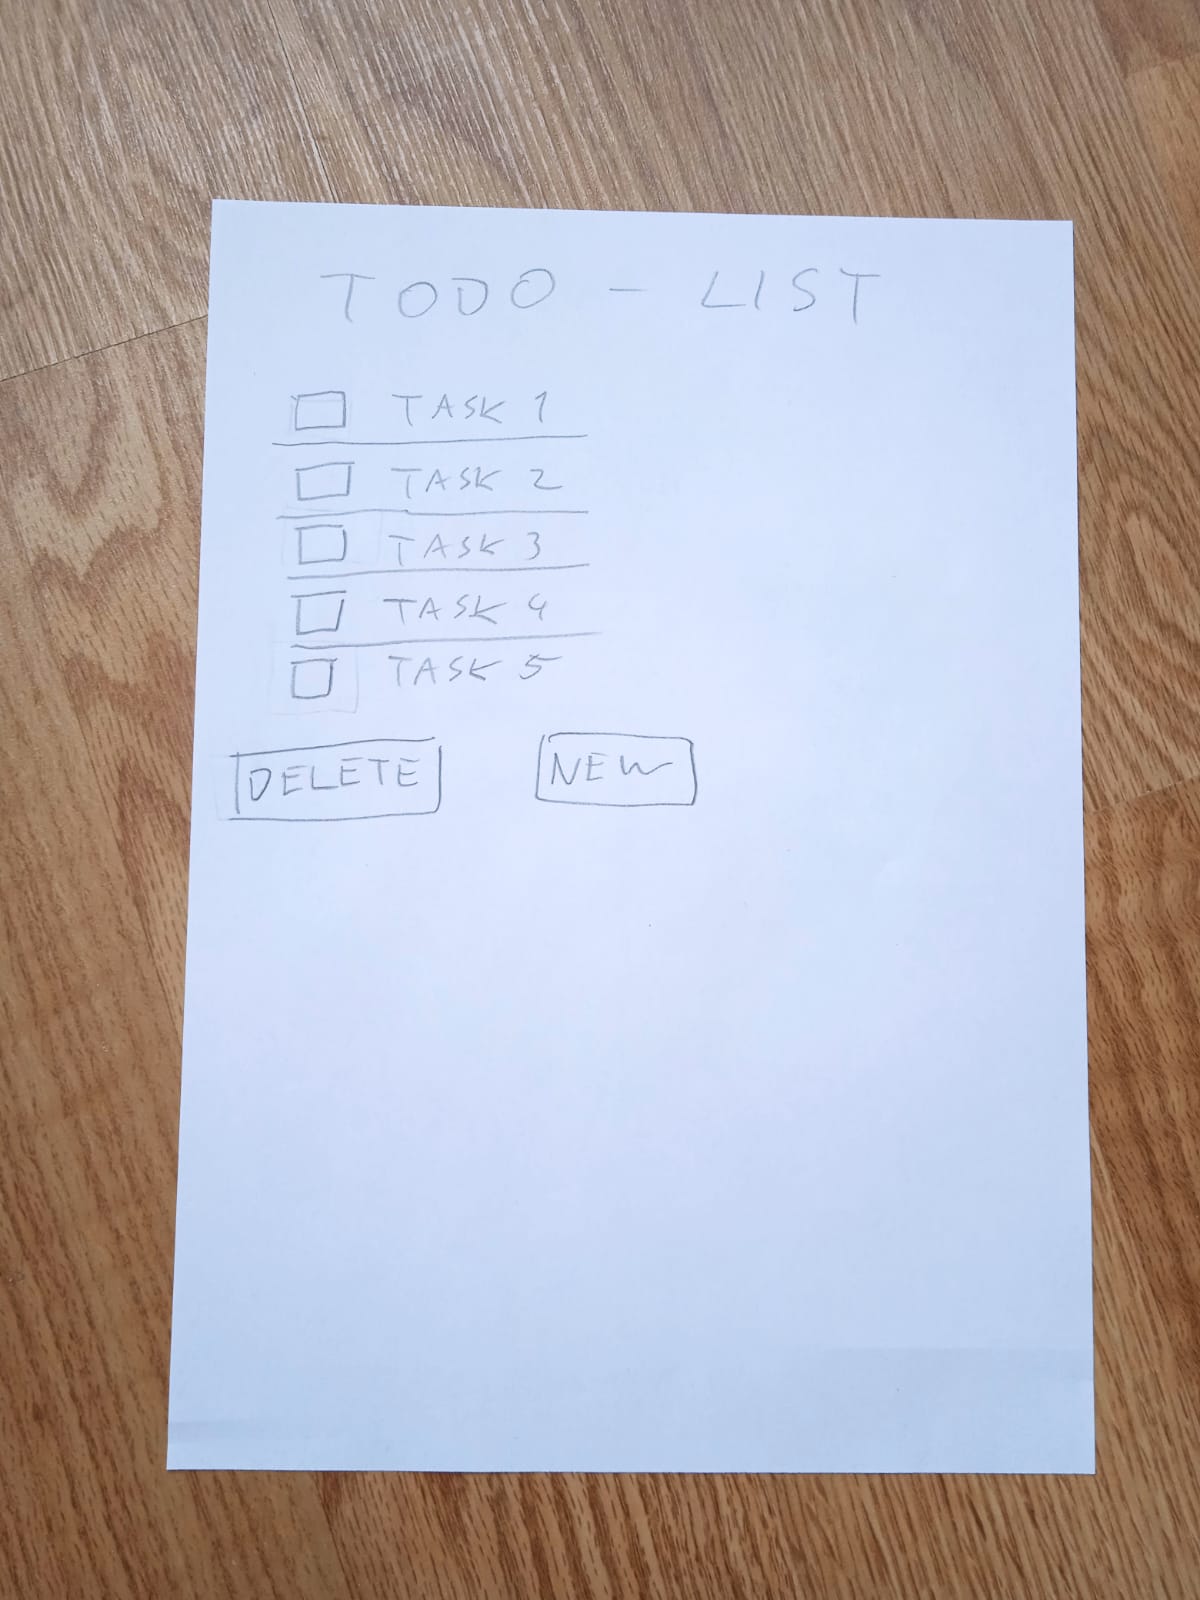 TODO - LIST
TASK 1
TASK 2
TASK 3
TASK 4
TASK 5
DELETE NEW